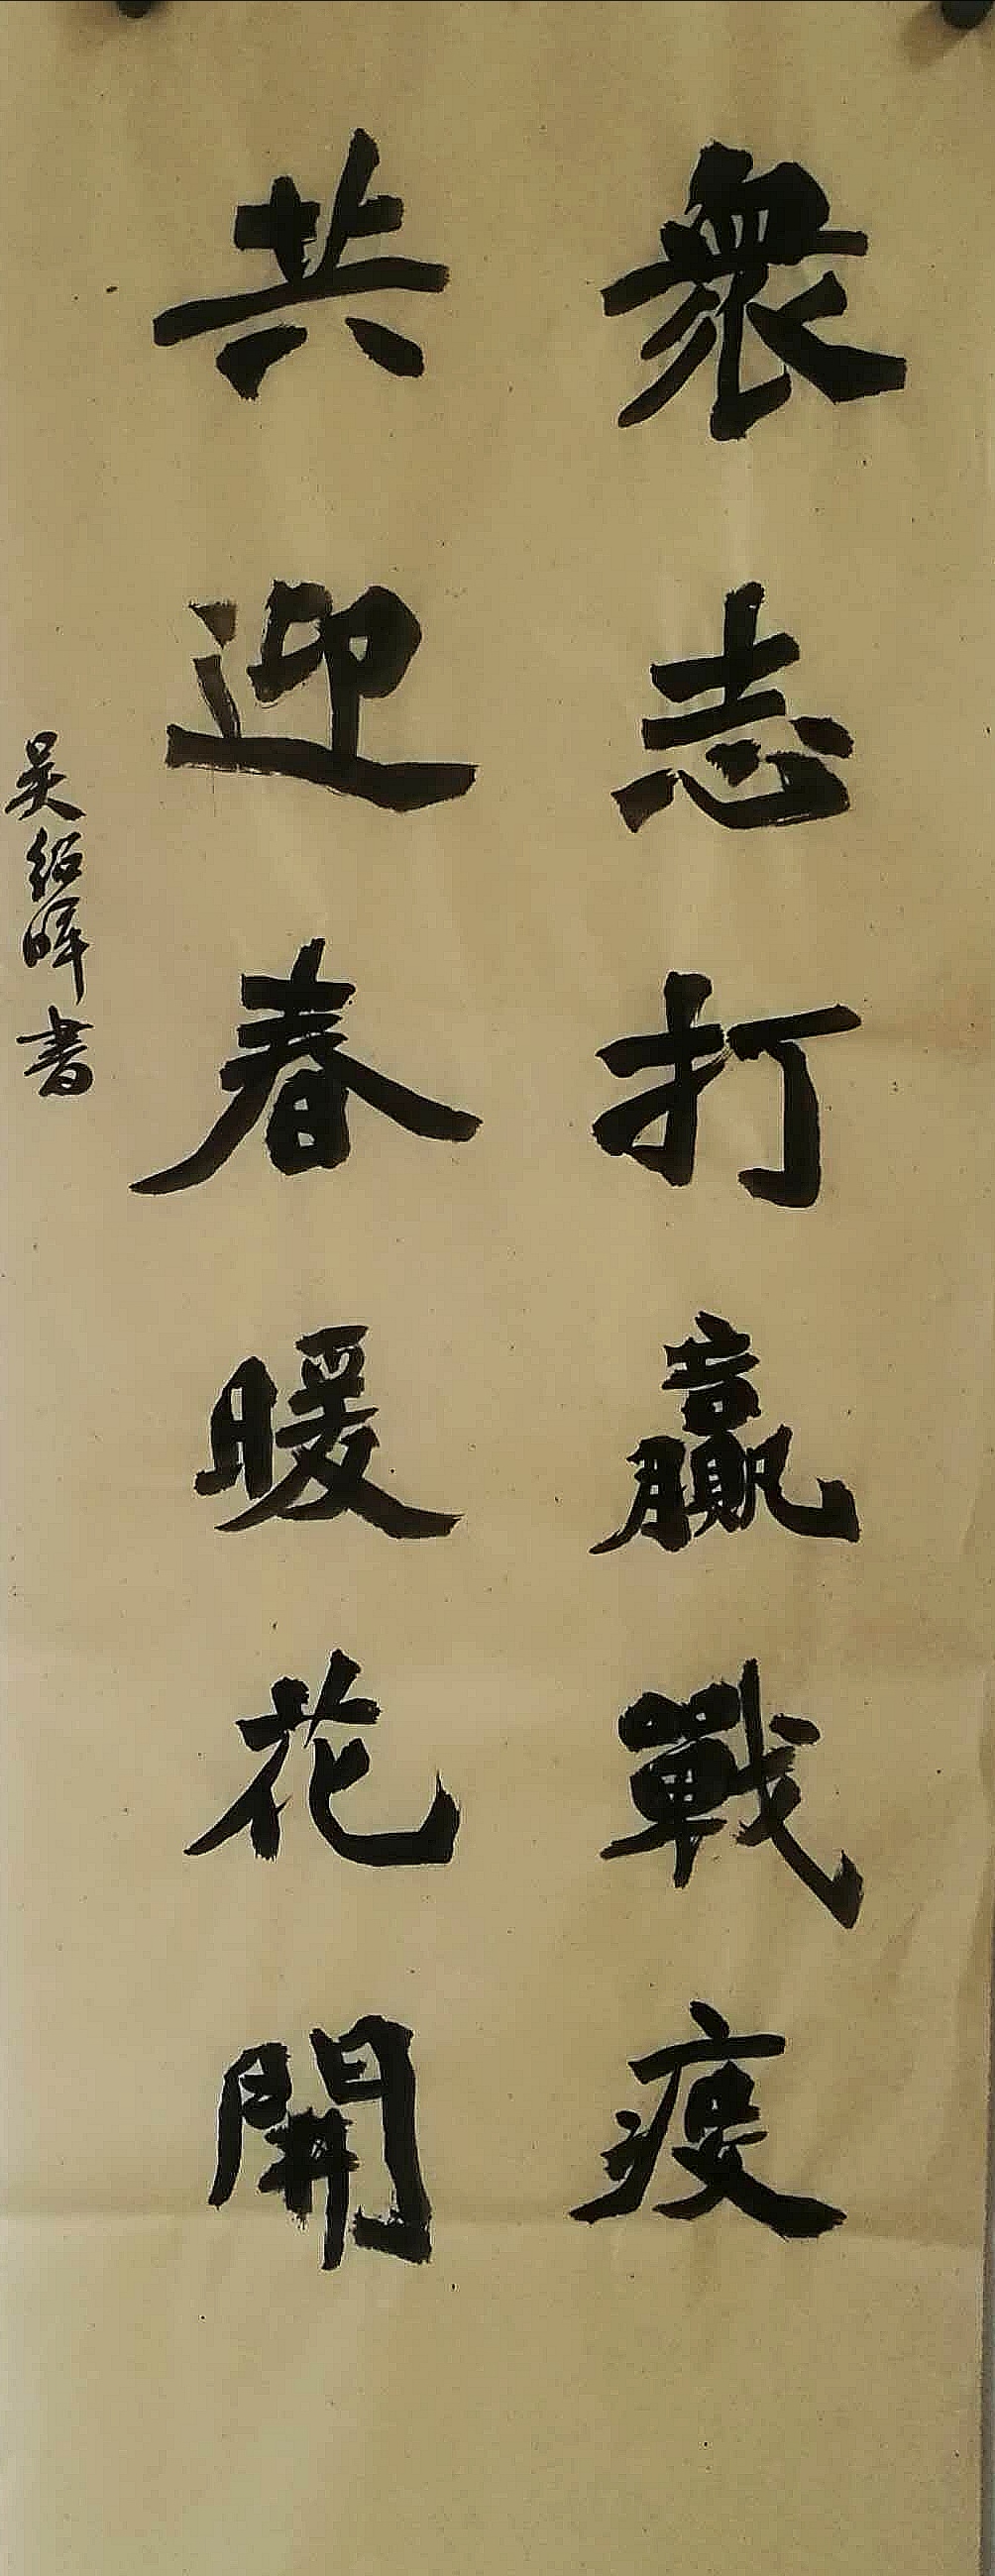 衆志打贏戰疫
共迎春暖花開
吴紹暉書